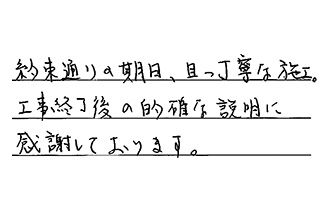 約束通りの期日、且つ丁寧な施工。
工事終了後の的確な説明に
感謝しております。